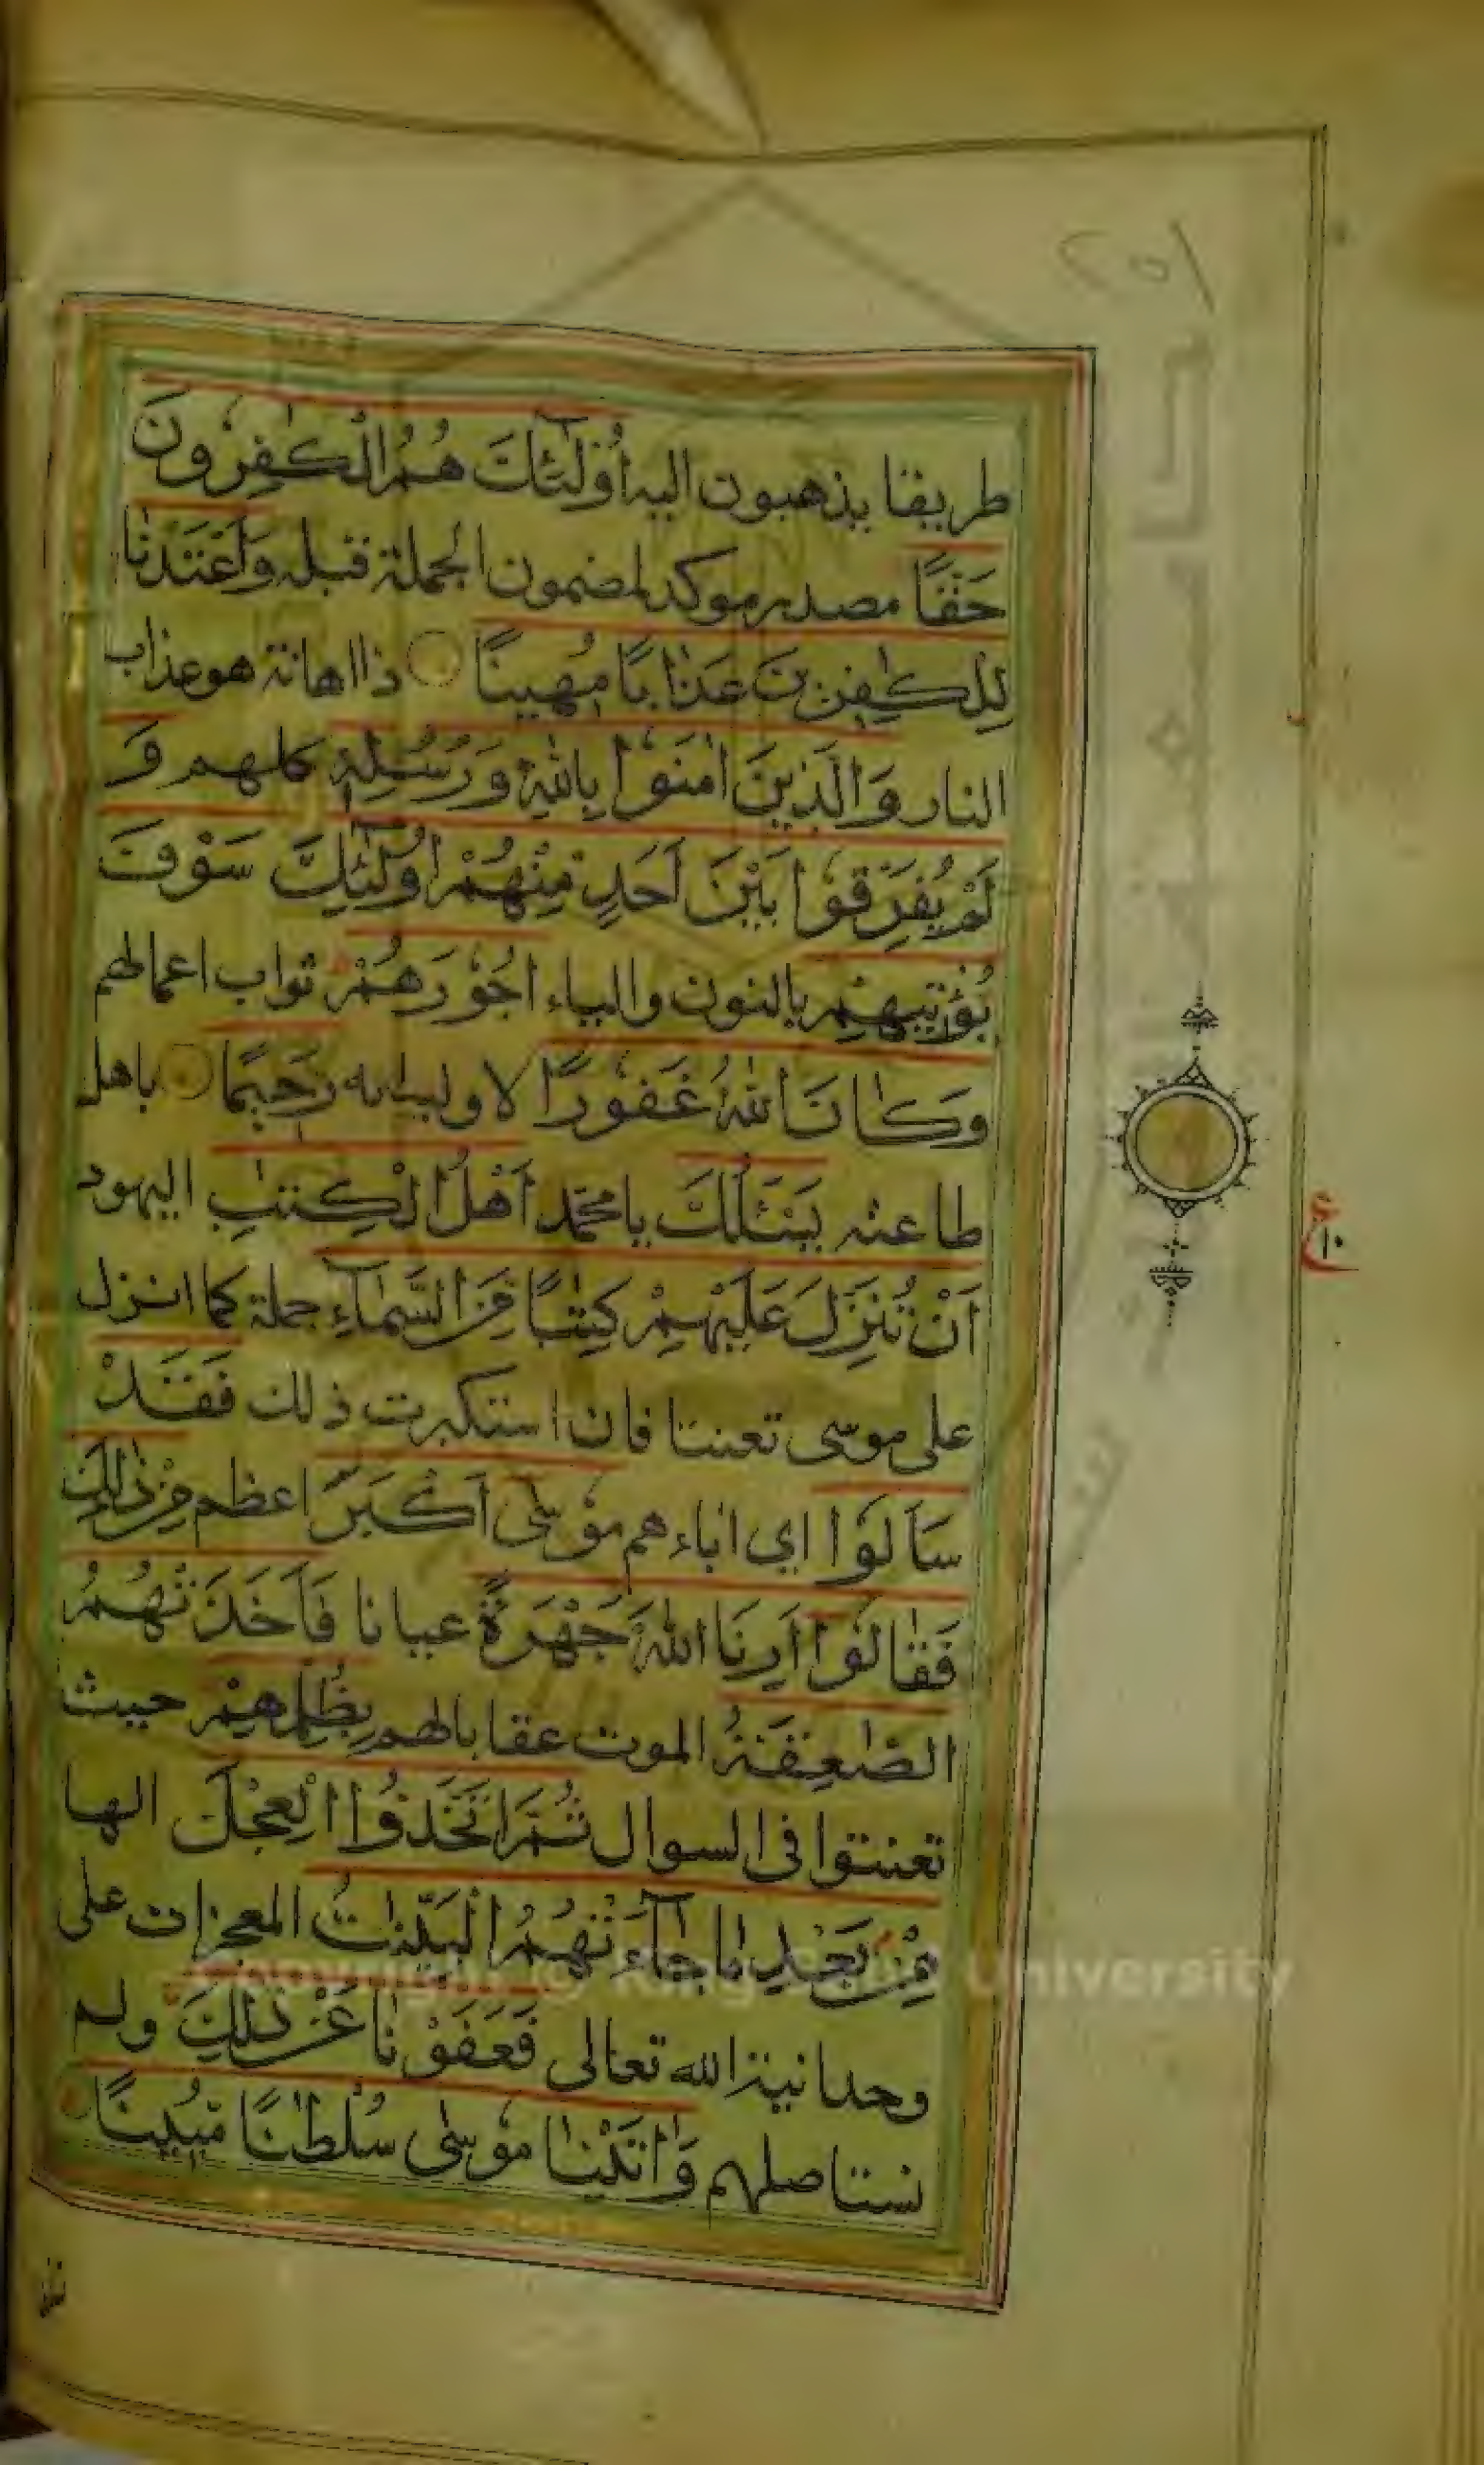 ١٥٢
طريقا يذهبون اليه أُولَٰٓئِكَ هُمُ الْكٰفِرُونَ
حَقًّا مصدر موكد لمضمون الجملة قبله وَاَعْتَدْنَا
لِلْكٰفِرِينَ عَذَابًا مُهِينًا ذا اهانة هو عذاب
النار وَالَّذِينَ اٰمَنُوا بِاللّٰهِ وَرُسُلِهِ كلهم وَ
لَمْ يُفَرِّقُوا بَيْنَ اَحَدٍ مِنْهُمْ اُولٰٓئِكَ سَوْفَ
يُؤْتِيهِمْ بالنون والياء اُجُورَهُمْ ثواب اعمالهم
وَكَانَ اللّٰهُ غَفُورًا لاوليائه رَحِيمًا باهل
طاعته يَسْئَلُكَ يا محمد اَهْلُ الْكِتٰبِ اليهود
اَنْ تُنَزِّلَ عَلَيْهِمْ كِتٰبًا مِنَ السَّمَآءِ جملة كما انزل
على موسى تعنتا فان استكبرت ذلك فَقَدْ
سَاَلُوا اي اباءهم مُوسٰى اَكْبَرَ اعظم مِنْ ذٰلِكَ
فَقَالُوا اَرِنَا اللّٰهَ جَهْرَةً عيانا فَاَخَذَتْهُمُ
الصّٰعِقَةُ الموت عقابا لهم بِظُلْمِهِمْ حيث
تعنتوا فى السوال ثُمَّ اتَّخَذُوا الْعِجْلَ الها
مِنْ بَعْدِ مَا جَآءَتْهُمُ الْبَيِّنٰتُ المعجزات على
وحدانية الله تعالى فَعَفَوْنَا عَنْ ذٰلِكَ ولم
نستاصلهم وَاٰتَيْنَا مُوسٰى سُلْطٰنًا مُبِينًا
ع
١٠
University